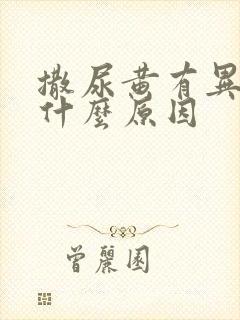 撒尿黄有異
什麼原因
曾麗園